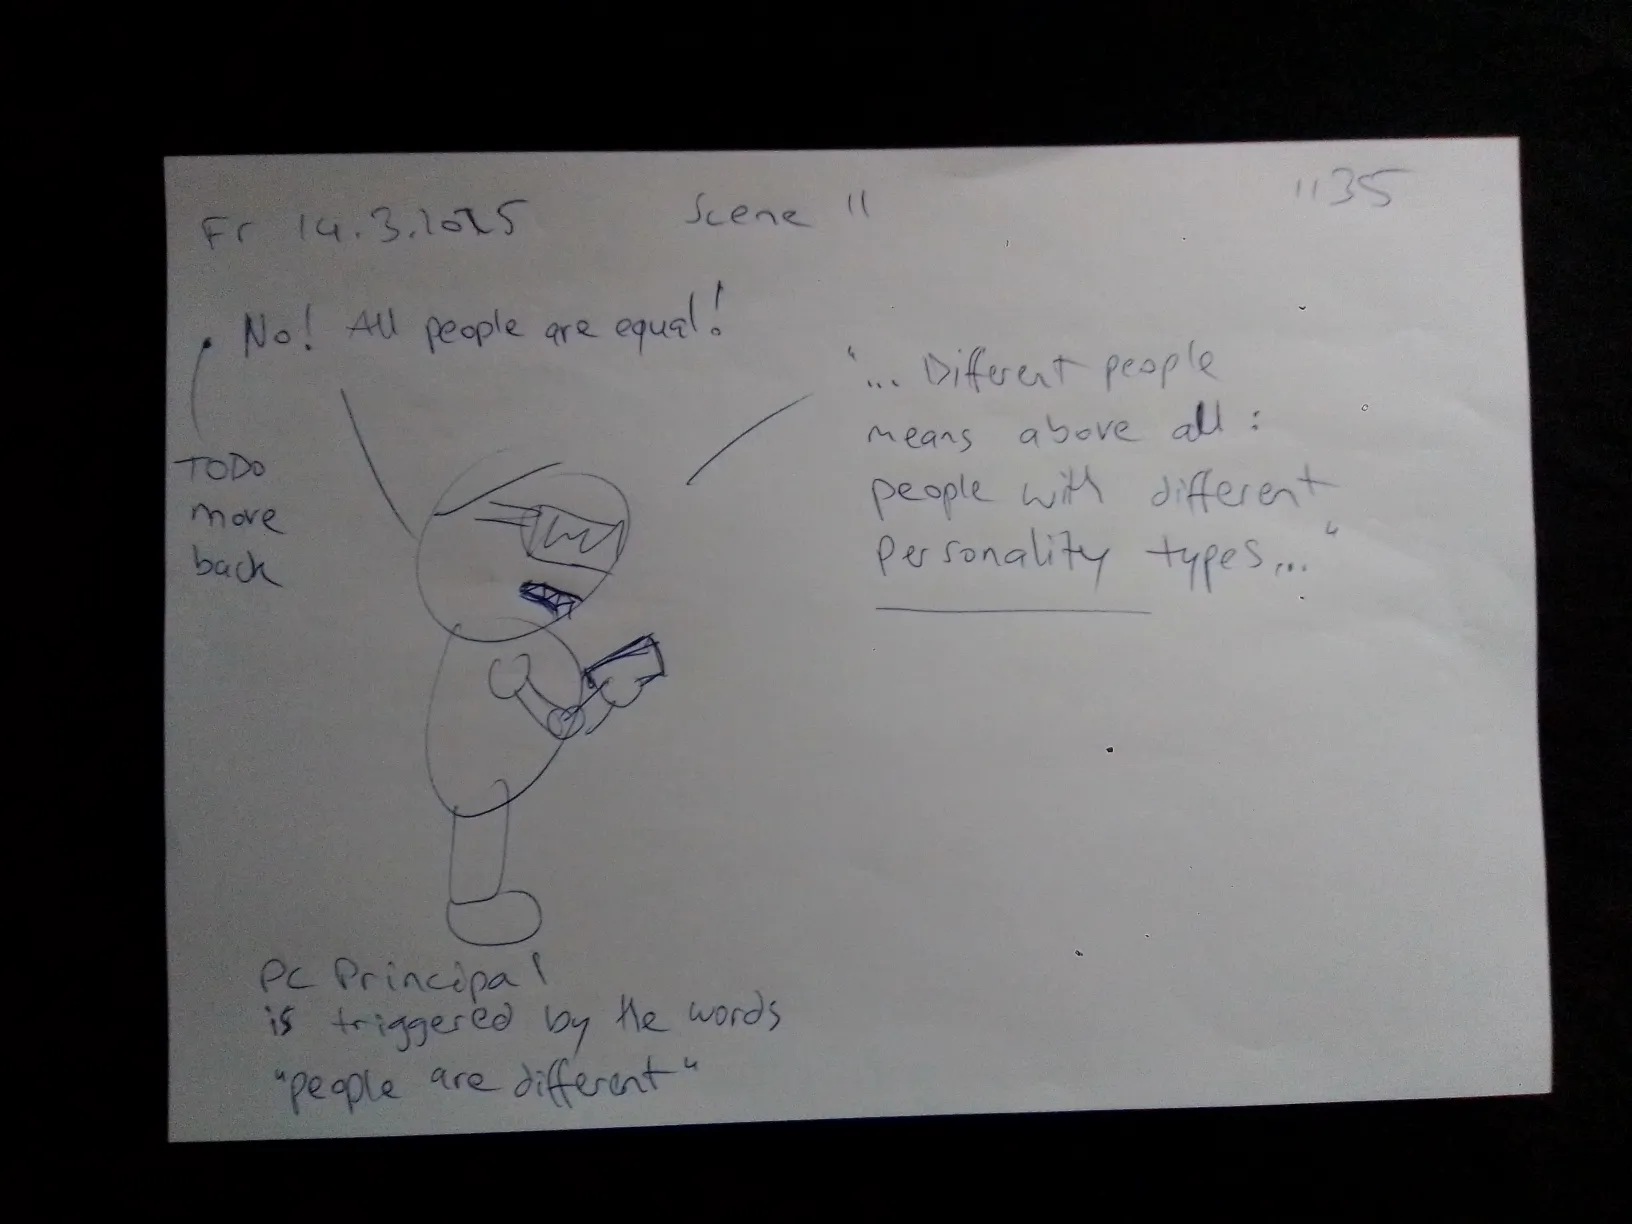 Fr 14.3.2025 Scene 11 1135
No! All people are equal!
TODO
move
back
"... Different people
means above all:
people with different
personality types..."
PC Principal
is triggered by the words
"people are different"